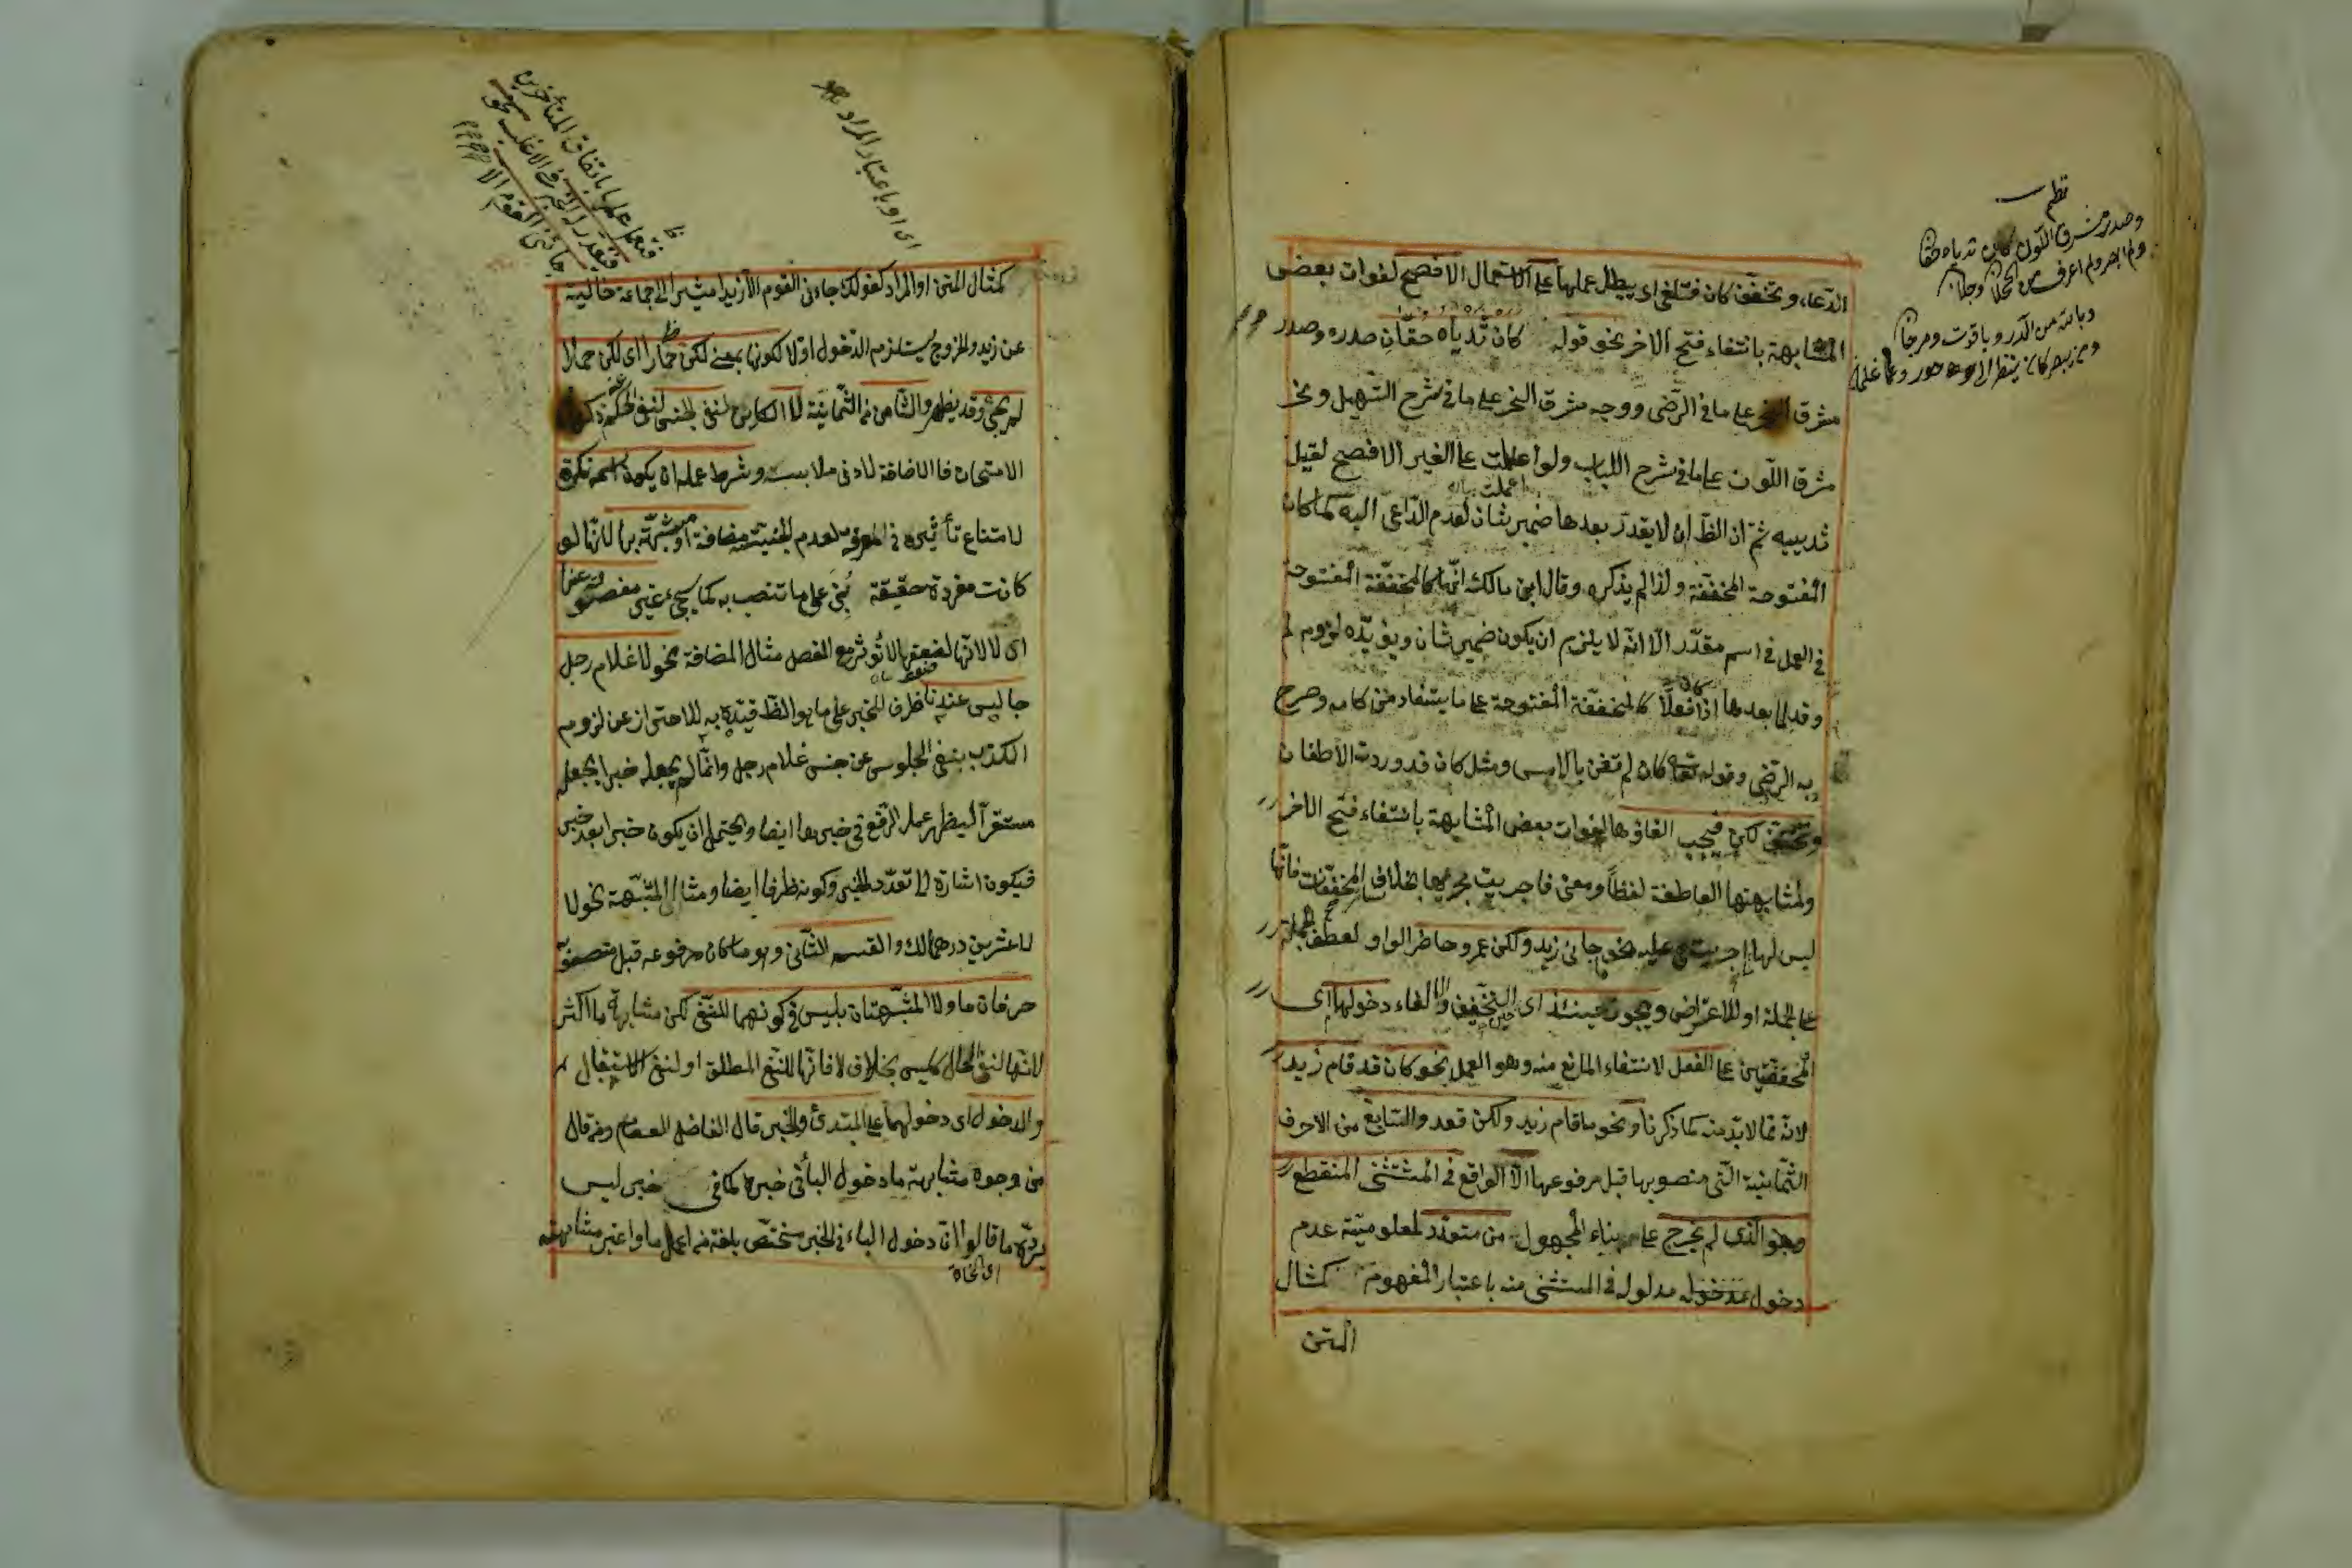 الدعاء وتخفف كان فتلغى اى يبطل عملها على الاستعمال الافصح لفوات بعض
المشابهة بانتفاء فتح الاخر نحو قوله كان ثدياه حقان صدره وصدر
مشرق النحر على ما فى الرضى ووجه مشرق النحر على ما فى شرح التسهيل ونحر
مشرق اللون على ما فى شرح اللباب ولو اعملت على الغير الافصح لقيل
ثدييه ثم ان الظ ان لا يقدر بعدها ضمير شان لعدم الداعى اليه كما كان
المفتوحة المخففة ولذا لم يذكره وقال ابن مالك انها كالمخففة المفتوحة
فى العمل فى اسم مقدر الا انه لا يلزم ان يكون ضمير شان ويؤيده لزوم لم
وقد لما بعدها اذا كان فعلا كالمخففة المفتوحة على ما يستفاد من كلامه وصرح
به الرضى وقوله تعالى كان لم تغن بالامس ومثل كان قد وردت الأظعان
وتخفف لكن فيجب الغاؤها لفوات بعض المشابهة بانتفاء فتح الاخر
ولمشابهتها العاطفة لفظا ومعنى فاجريت مجريها بخلاف سائر المخففات فانها
ليس لها ما اجريت عليه نحو جاءنى زيد ولكن عمرو حاضر الواو لعطف الجملة
على الجملة او للاعتراض ويجوز حينئذ اى حين التخفيف والالغاء دخولهما اى
المخففتين على الفعل لانتفاء المانع منه وهو العمل نحو كان قد قام زيد
لانه مما لا بد منه كما ذكرنا ونحو ما قام زيد ولكن قعد والسابع من الاحرف
الثمانية التى منصوبها قبل مرفوعها الا الواقع فى المستثنى المنقطع
وهو الذى لم يخرج على بناء المجهول من متعدد لمعلومية عدم
دخول مدلوله فى المستثنى منه باعتبار المفهوم كمثال
المتن
نظم
وصدر مشرق اللون كان ثدياه حقا
كمثال المتن او المراد كقولك جاءنى القوم الا زيدا مشيرا الى جماعة خالية
عن زيد والخروج يستلزم الدخول اولا لكونها بمعنى لكن حمارا اى لكن حمارا
لم يجئ وقد يظهر والثامن من الثمانية لا الكائن لنفى الجنس لنفى الحكم
الامتحان فالاضافة لادنى ملابسة وشرط عمله ان يكون اسمه نكرة
لامتناع تأثيره فى المعرفة لعدم الجنسية مضافة او مشبهة بها لانها لو
كانت مفردة حقيقة بنى على ما تنصب به كما سيجىء غير مفصولة عنها
اى لا لانها لضعفها لا تؤثر مع الفصل مثال المضافة نحو لا غلام رجل
جالس عندنا ظرف للخبر على ما هو الظ قيده به للاحتراز عن لزوم
الكذب بنفى الجلوس عن جنس غلام رجل وانما لم يجعله خبرا بجعله
مستقرا ليظهر عمل الرفع فى خبرها ايضا ويحتمل ان يكون خبرا بعد خبر
فيكون اشارة الى تعدد الخبر وكونه ظرفا ايضا ومثال المشبهة نحو لا
لا عشرين درهما لك والقسم الثانى وهو ما كان مرفوعه قبل منصوبه
حرفان ما ولا المشبهتان بليس فى كونهما للنفى لكن مشابهة ما اكثر
لانها لنفى الحال كليس بخلاف لا فانها للنفى المطلق او لنفى الاستقبال
والدخول اى دخولهما على المبتدئ والخبر قال الفاضل العصام ومن قال
من وجوه مشابهة ما دخول الباء فى خبره كما فى خبر ليس
يرده ما قالوا ان دخول الباء فى الخبر مختص بلغة من اعمل ما واعتبر مشابهته
اى النحاة
اى او باعتبار المراد